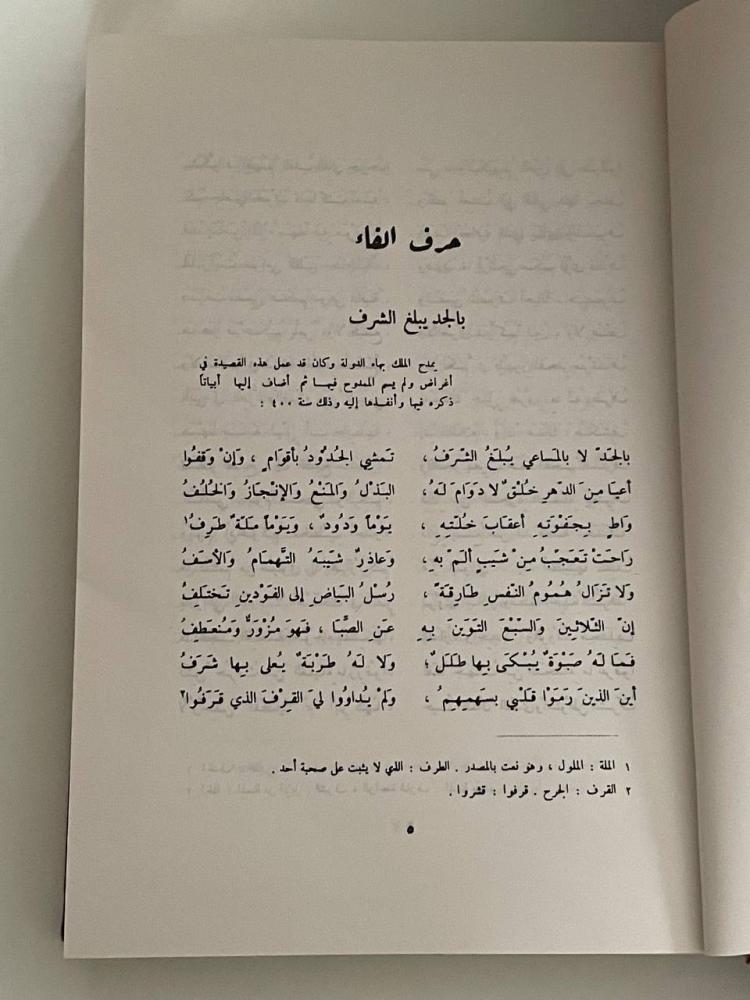 حرف الفاء
بالجد يبلغ الشرف
يمدح الملك بهاء الدولة وكان قد عمل هذه القصيدة في
أغراض ولم يسم الممدوح فيها ثم أضاف إليها أبياتاً
ذكره فيها وأنفذها إليه وذلك سنة ٤٠٠ :
بالجَدّ لا بالمَساعي يُبلَغُ الشّرَفُ ، تَمشي الجُدُودُ بأقوَامٍ ، وَإنْ وَقَفُوا
أعيَا مِنَ الدّهرِ خُلْقٌ لا دَوَامَ لَهُ ، البَذْلُ وَالمَنْعُ وَالإنْجَازُ وَالخُلُفُ
وَاطٍ بِجَفْوَتِهِ أعقَابَ خُلّتِهِ ، يَوْماً وَدُودٌ ، وَيَوْماً مَلّةٌ طَرِفُ١
رَاحَتْ تَعَجّبُ مِنْ شَيبٍ ألَمّ بهِ ، وَعاذِرٌ شَيبَهُ التَّهمَامُ وَالأسَفُ
وَلا تَزَالُ هُمُومُ النّفسِ طَارِقَةً ، رُسْلُ البَيَاضِ إلى الفَوْدَينِ تَختَلِفُ
إنّ الثّلاثِينَ وَالسّبْعَ التَوَينَ بِهِ عَنِ الصِّبَا ، فَهوَ مُزْوَرٌّ وَمُنعَطِفُ
فَمَا لَهُ صَبْوَةٌ يُبْكَى بِها طَلَلٌ ؛ وَلا لَهُ طَرْبَةٌ يُعلى بِها شَرَفُ
أينَ الذينَ رَمَوْا قَلْبي بسَهمِهِمُ ، وَلَمْ يُداوُوا ليَ القِرْفَ الذي قَرَفُوا٢
١ الملة : الملول ، وهو نعت بالمصدر . الطرف : الذي لا يثبت على صحبة أحد .
٢ القرف : الجرح . قرفوا : قشروا .
٥